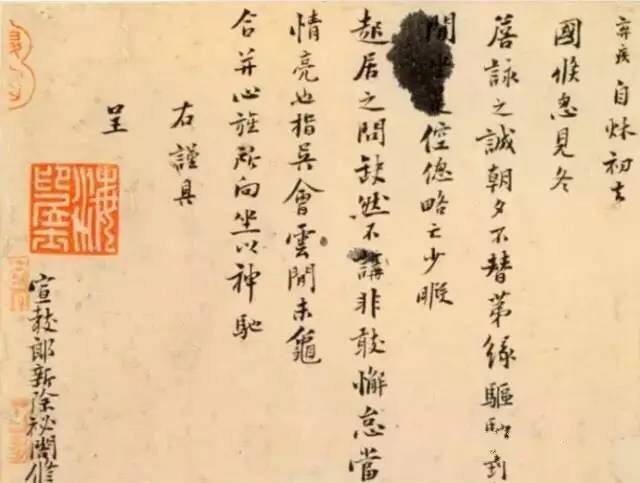 棄疾自秌初去
國倐忽見冬
詹詠之誠朝夕不替第緣驅馳到
間坐是倥傯略亡少暇
起居之問缺然不講非敢懈怠當
情亮也指吳會雲間未龜
合并心旌所向坐以神馳
右謹具
呈
宣教郎新除祕閣修